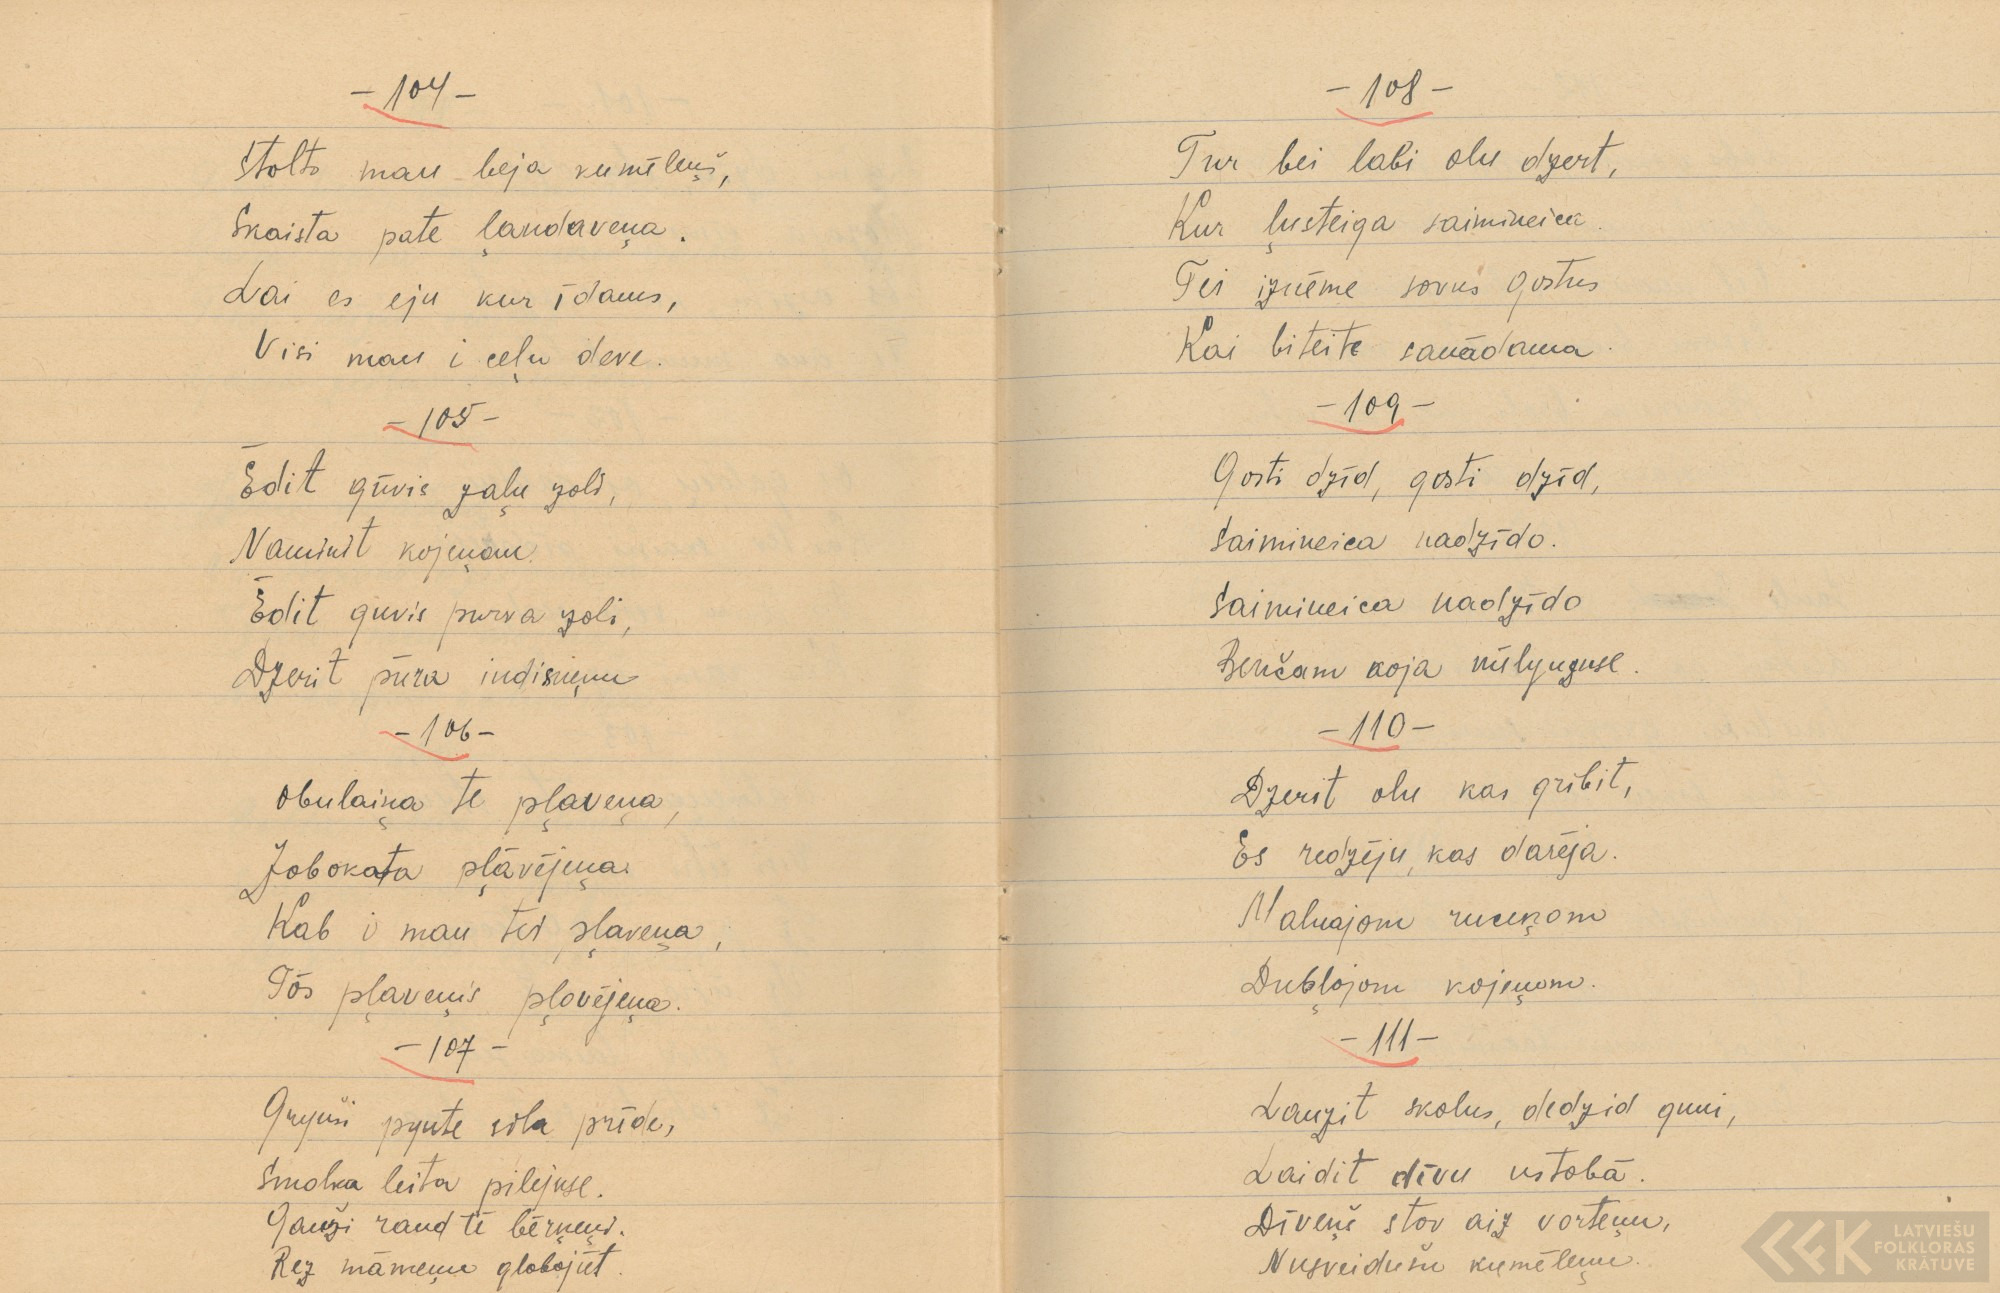 - 104 -
Stolts man beja kumēleņš,
Skaista pate ļaudaveņa.
Lai es eju kur īdams,
Visi man i ceļu deve.
- 105 -
Ēdit gūvis zaļu zoli,
Naminit kojeņom
Ēdit guvis purva zoli,
Dzerit pūra iudisneņu
- 106 -
Obulaiņa te pļaveņa,
Zobokata pļāvējeņa.
Kab i man tei pļaveņa,
Tōs pļaveņis pļovējeņa.
- 107 -
Gryuši pyute sila prīde,
Smolka leita pilejuse.
Gauži raud tē bērneņi.
Rez māmeņu globojūt.
- 108 -
Tur bei labi olu dzert,
Kur ļusteiga saimineica.
Tei izņēme sovus gostus
Kai biteite sanādama.
- 109 -
Gosti dzīd, gosti dzīd,
Saimineica nadzīdo.
Saimineica nadzīdo
Benčam koja nūlyuzuse.
- 110 -
Dzerit olu kas gribit,
Es redzēju, kas darēja.
Malnajom ruceņom
Dubļojom kojeņom.
- 111 -
Lauzit skolus, dedzid guni,
Laidit dīvu ustobā.
Dīveņš stov aiz vorteņu,
Nusveidušu kumēleņu.
LATVIEŠU
FOLKLORAS
KRĀTUVE